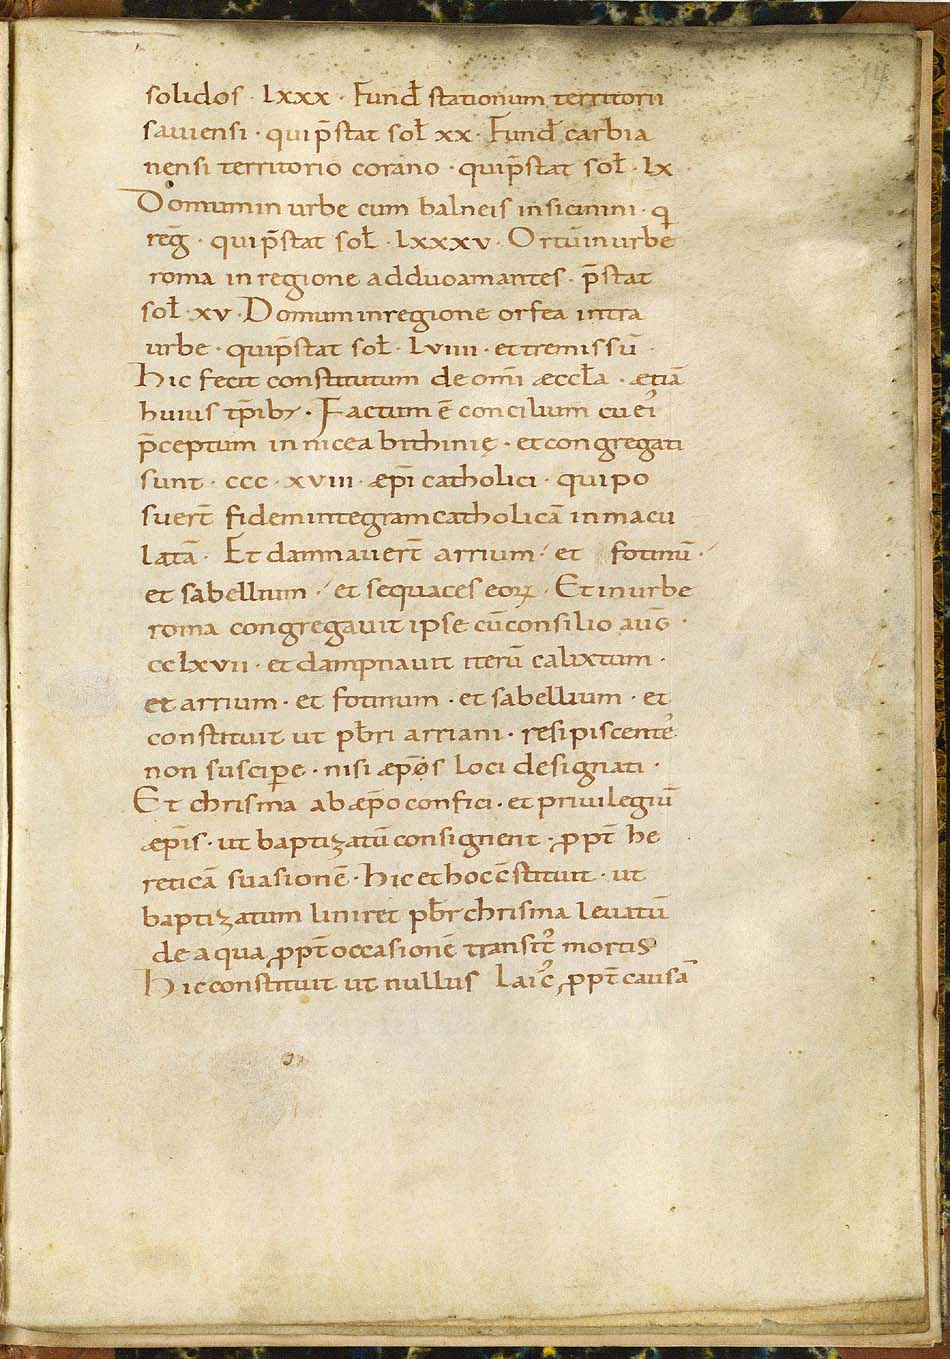 solidos · lxxx · Fund̄ stationum territorii
sauiensi · qui p̄stat sol̄ xx · Fund̄ carbia
nensi territorio corano · qui p̄stat sol̄ · lx
Domum in urbe cum balneis in sicinini · q
reḡ · qui p̄stat sol̄ · lxxxv · Ortū in urbe
roma in regione ad duo amantes · p̄stat
sol̄ · xv · Domum in regione orfea intra
urbe · qui p̄stat sol̄ · lviiii · et tremissū
hic fecit constitutum de om̄i æccl̄a · ætiā
huius tp̄ib; · Factum ē concilium cū ei'
p̄ceptum in nicea bithinię · et congregati
sunt · ccc · xviii · æpī catholici · qui po
suer̄t fidem integram catholicā inmacu
latā · Et damnauer̄t arrium · et fotinū ·
et sabellium · et sequaces eoꝝ · Et in urbe
roma congregauit ipse cū consilio auḡ ·
cclxvii · et dampnauit iterū calixtum ·
et arrium · et fotinum · et sabellium · et
constituit ut pb̄ri arriani · resipiscente'
non susciꝑe · nisi æp̄os loci designati ·
Et chrisma ab æp̄o confici · et priuilegiū
æpīs · ut baptizatū consignent · ꝓpt̄ he
reticā suasionē · hic et hoc c̄stituit · ut
baptizatum liniret pb̄r chrisma leuatū
de aqua ꝓpt̄ occasionē transit' mortis
hic constituit ut nullus laic' ꝓpt̄ causā